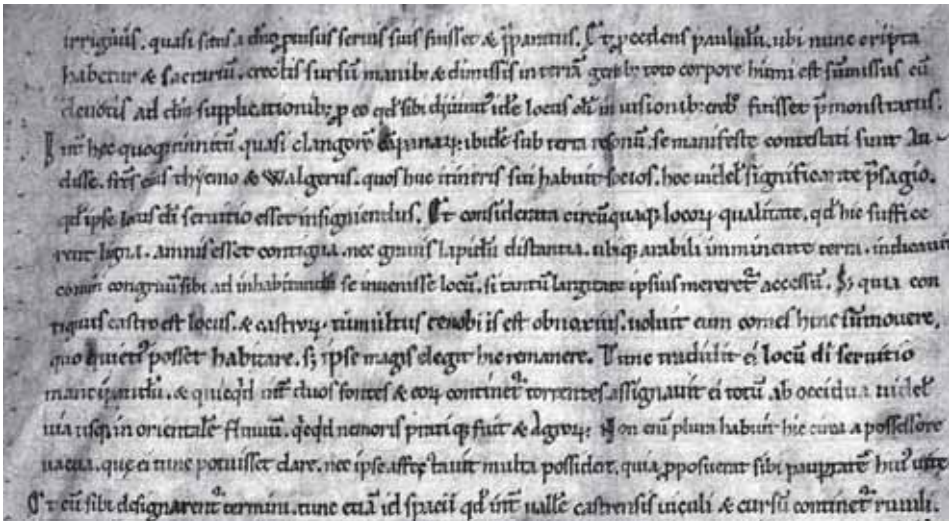 irriguus. quasi situs a dn̄o p̄uisus seruis suis fuisset & p̄paratus. Et p̄cedens paululū. ubi nunc cripta
habetur & sacrariū. erectis sursū manibꝫ & dimissis in terrā genibꝫ toto corpore humi est sūmissus cū
deuotis ad dn̄m supplicationibꝫ p eo qd̄ sibi diuinit᷒ idē locus olī in uisionibꝫ fuisset p̄monstratus.
hec quoqꝫ tinnitū quasi clangorē ibidē sub terra resonū. se manifeste contestati sunt Au-
disse. fr̄s eius thyemo & Walgerus. quos huc itineris sui habuit socios. hoc uidel᷒ significante p̄sagio.
qd̄ ipse locus dī seruitio esset insigniendus. Et considerata circūquaqꝫ locoꝝ qualitate. qd̄ hic suffice
rent ligna. amnis esset contigua. nec grauis lapidū distantia. ubiqꝫ arabili imminente terra. indicauit
comiti congruū sibi ad inhabitandū se inuenisse locū. si tantū largitate ipsius mereret᷒ accessū. Sꝫ quia con
tiguus castro est locus. & castroꝝ tumultus cenobiis est obuiarius. uoluit eum comes hinc sūmouere,
quo quiet᷒ posset habitare. sꝫ ipse magis elegit hic remanere. Tunc tradidit ei locū dī seruitio
mancipandū. & quicqd̄ int̄ duos fontes & eoꝝ continet᷒ torrentes. assignauit ei totū ab occidua uidel᷒
uia usqꝫ in orientalē fluuiū. qcqd̄ nemoris pratiqꝫ fuit & agroꝝ. Non enī plura habuit hic circa a possessore
uacua. que ei tunc potuisset dare. nec ipse affectauit multa possidere. quia p̄posuerat sibi pauptatē hui᷒ uite
Et cū sibi designarent᷒ termini. tunc etiā id spacii qd̄ int̄ uallē castrensis uinculi & cursū continet᷒ riuuli.